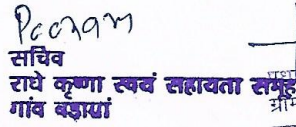 Poonam
सचिव
राधे कृष्णा स्वयं सहायता समूह
गांव बड़ाणां